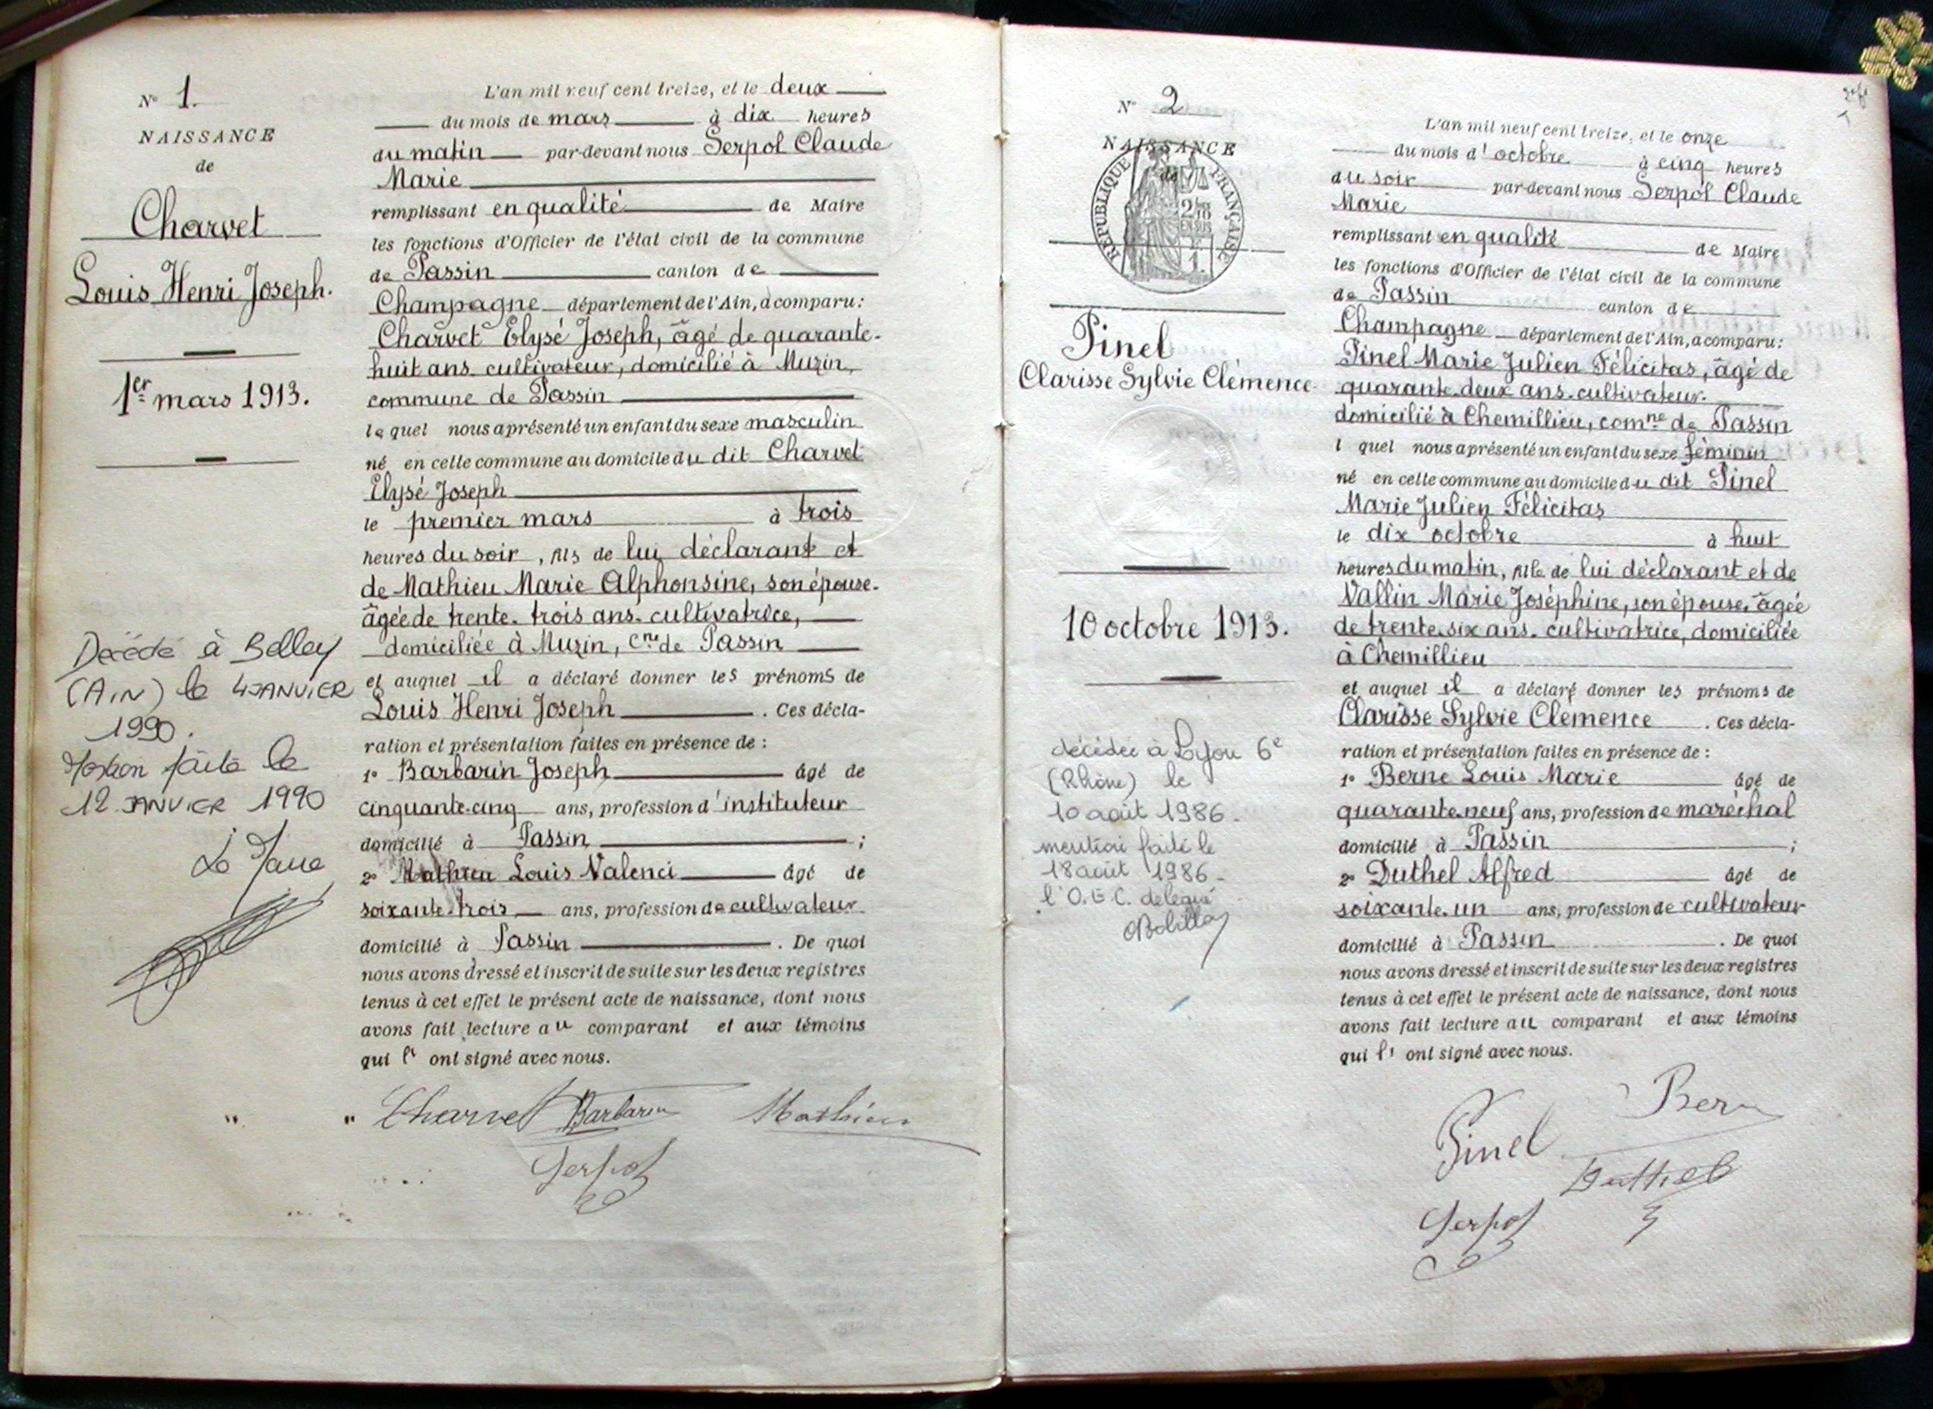 N° 1.
NAISSANCE
de
Charvet
Louis Henri Joseph.
1er mars 1913.
Décédé à Belley
(AIN) le 4 JANVIER
1990.
faite le
12 JANVIER 1990
Le
L'an mil neuf cent treize, et le deux
du mois de mars à dix heures
du matin par-devant nous Serpol Claude
Marie
remplissant en qualité de Maire
les fonctions d'Officier de l'état civil de la commune
de Passin canton de
Champagne département de l'Ain, a comparu :
Charvet Elysé Joseph, âgé de quarante-
huit ans, cultivateur, domicilié à Muzin,
commune de Passin
lequel nous a présenté un enfant du sexe masculin
né en cette commune au domicile du dit Charvet
Elysé Joseph
le premier mars à trois
heures du soir, fils de lui déclarant et
de Mathieu Marie Alphonsine, son épouse.
âgée de trente-trois ans. cultivatrice,
domiciliée à Muzin, Cne de Passin
et auquel il a déclaré donner les prénoms de
Louis Henri Joseph. Ces décla-
ration et présentation faites en présence de :
1° Barbarin Joseph âgé de
cinquante-cinq ans, profession d'instituteur
domicilié à Passin ;
2° Mathieu Louis Valenci âgé de
soixante-trois ans, profession de cultivateur
domicilié à Passin. De quoi
nous avons dressé et inscrit de suite sur les deux registres
tenus à cet effet le présent acte de naissance, dont nous
avons fait lecture au comparant et aux témoins
qui l'ont signé avec nous.
" " Charvet Barbarin Mathieu
Serpol
N° 2
NAISSANCE
de
RÉPUBLIQUE FRANÇAISE
Pinel
Clarisse Sylvie Clémence
10 octobre 1913.
décédée à Lyon 6e
(Rhône) le
10 août 1986.
mention faite le
18 août 1986.
l'O.E.C. délégué
L'an mil neuf cent treize, et le onze
du mois d'octobre à cinq heures
du soir par-devant nous Serpol Claude
Marie
remplissant en qualité de Maire
les fonctions d'Officier de l'état civil de la commune
de Passin canton de
Champagne département de l'Ain, a comparu :
Pinel Marie Julien Félicitas, âgé de
quarante-deux ans. cultivateur.
domicilié à Chemillieu, comne de Passin
l quel nous a présenté un enfant du sexe féminin
né en cette commune au domicile du dit Pinel
Marie Julien Félicitas
le dix octobre à huit
heures du matin, fille de lui déclarant et de
Vallin Marie Joséphine, son épouse, âgée
de trente-six ans. cultivatrice, domiciliée
à Chemillieu
et auquel il a déclaré donner les prénoms de
Clarisse Sylvie Clémence. Ces décla-
ration et présentation faites en présence de :
1° Berne Louis Marie âgé de
quarante-neuf ans, profession de maréchal
domicilié à Passin ;
2° Duthel Alfred âgé de
soixante-un ans, profession de cultivateur
domicilié à Passin. De quoi
nous avons dressé et inscrit de suite sur les deux registres
tenus à cet effet le présent acte de naissance, dont nous
avons fait lecture au comparant et aux témoins
qui l'ont signé avec nous.
Pinel Berne
Duthel
Serpol